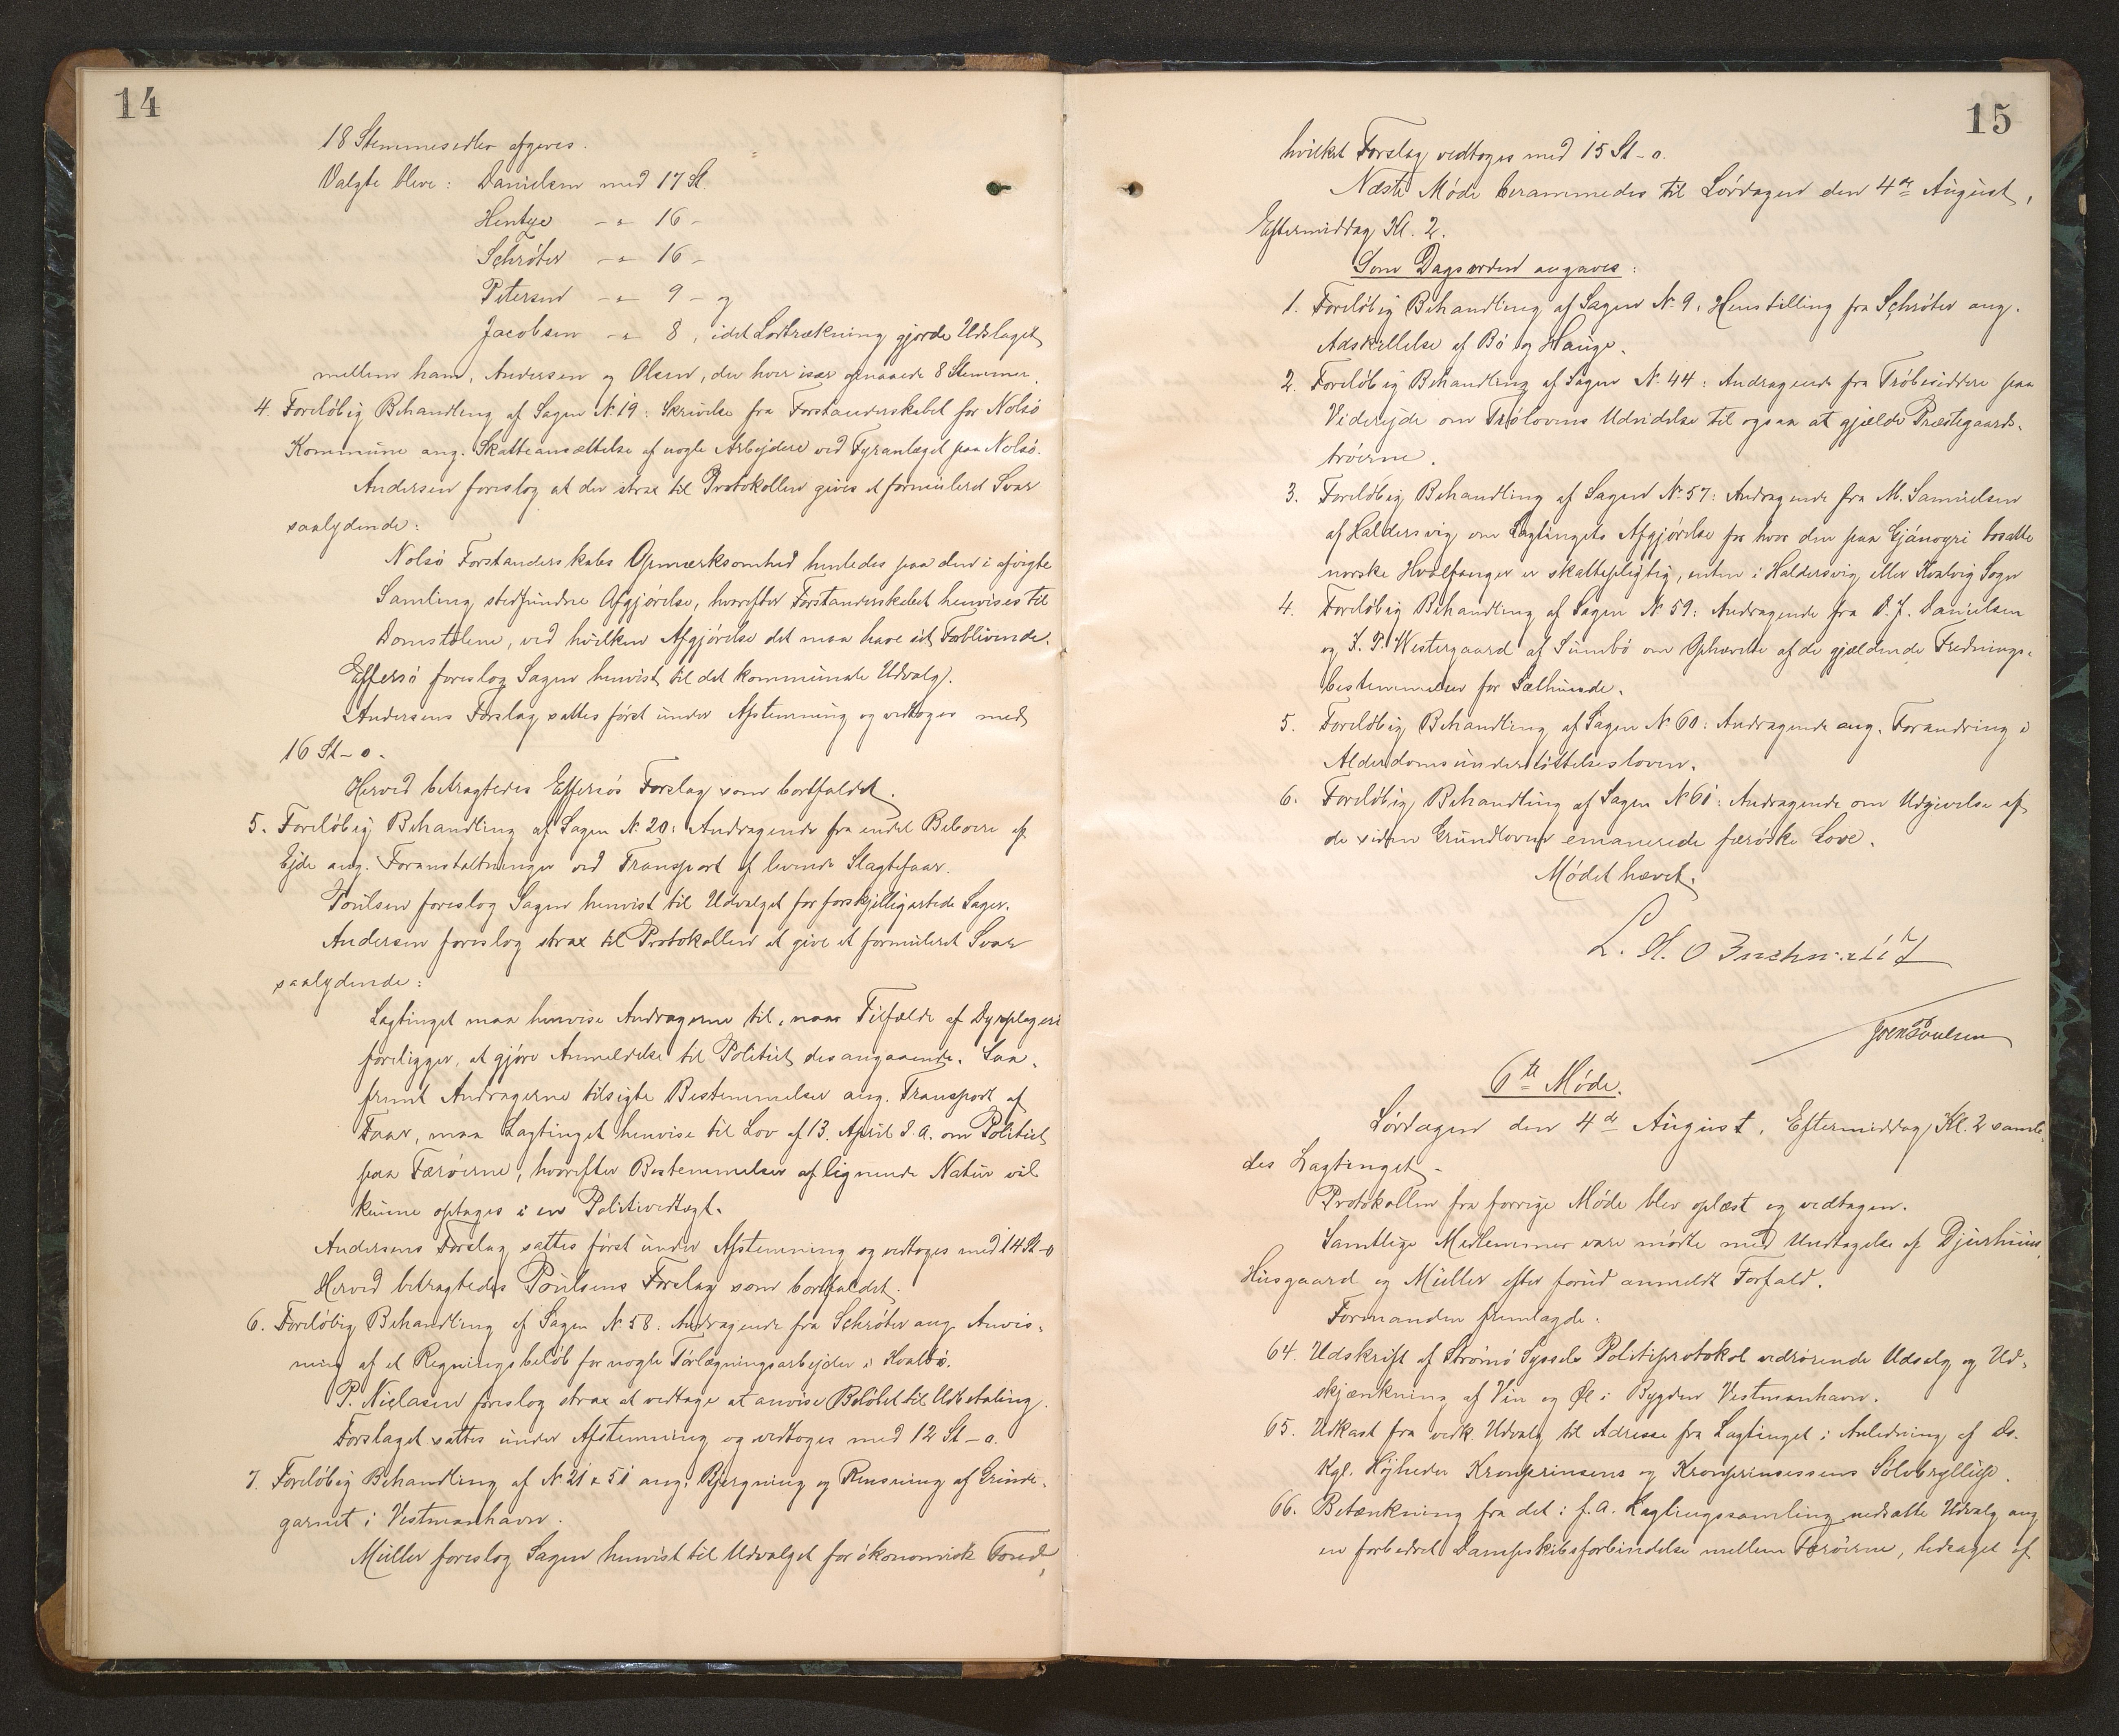 14
18 Stemmesedler afgaves.
Valgte bleve: Danielsen med 17 St.
Hentze - " - 16 -
Schrøter - " - 16 -
Petersen - " - 9 - og
Jacobsen - " - 8, idet Lodtrækning gjorde Udslaget
mellem ham, Andersen og Olsen, der hver især opnaaede 8 Stemmer.
4. Foreløbig Behandling af Sagen № 19: Skrivelse fra Forstanderskabet for Nolsø
Kommune ang. Skatteansættelse af nogle Arbejdere ved Fyranlæget paa Nolsø.
Andersen foreslog at der strax til Protokollen gives et formuleret Svar
saalydende:
Nolsø Forstanderskabs Opmærksomhed henledes paa den i afvigte
Samling stedfundne Afgjørelse, hvorefter Forstanderskabet henvises til
Domstolene, ved hvilken Afgjørelse det maa have sit Forblivende.
Effersø foreslog Sagen henvist til det kommunale Udvalg.
Andersens Forslag sattes først under Afstemning og vedtoges med
16 St - 0.
Herved betragtedes Effersøs Forslag som bortfaldet.
5. Foreløbig Behandling af Sagen № 20: Andragende fra endel Beboere af
Ejde ang. Foranstaltninger ved Transport af levende Slagtefaar.
Poulsen foreslog Sagen henvist til Udvalget for forskjelligartede Sager.
Andersen foreslog strax til Protokollen at give et formuleret Svar
saalydende:
Lagtinget maa henvise Andragerne til, naar Tilfælde af Dyrplageri
foreligger, at gjøre Anmeldelse til Politiet desangaaende. Saa-
fremt Andragerne tilsigte Bestemmelser ang. Transport af
Faar, maa Lagtinget henvise til Lov af 13. April d. A. om Politiet
paa Færøerne, hvorefter Bestemmelser af lignende Natur vil
kunne optages i en Politivedtægt.
Andersens Forslag sattes først under Afstemning og vedtoges med 14 St - 0
Herved betragtedes Poulsens Forslag som bortfaldet.
6. Foreløbig Behandling af Sagen № 58: Andragende fra Schrøter ang. Anvis-
ning af et Regningsbeløb for nogle Tørlægningsarbejder i Kvalbø.
P. Nielasen foreslog strax at vedtage at anvise Beløbet til Udbetaling.
Forslaget sattes under Afstemning og vedtoges med 12 St - 0.
7. Foreløbig Behandling af № 21 & 51 ang. Bjergning og Rensning af Grinde-
garnet i Vestmanhavn.
Müller foreslog Sagen henvist til Udvalget for økonomiske Fonde,
15
hvilket Forslag vedtoges med 15 St - 0.
Næste Møde berammedes til Lørdagen den 4de August,
Eftermiddag Kl. 2.
Som Dagsorden angaves:
1. Foreløbig Behandling af Sagen № 9. Henstilling fra Schrøter ang.
Adskillelse af Bø og Hauge.
2. Foreløbig Behandling af Sagen № 44: Andragende fra Trøbesiddere paa
Viderejde om Trølovens Udvidelse til ogsaa at gjælde Præstegaards-
trøerne.
3. Foreløbig Behandling af Sagen № 57: Andragende fra M. Samuelsen
af Haldersvig om Lagtingets Afgjørelse for hvor den paa Gjánoyri bosatte
norske Hvalfanger er skattepligtig, enten i Haldersvig eller Kvalvig Sogn
4. Foreløbig Behandling af Sagen № 59: Andragende fra D. J. Danielsen
og J. P. Westergaard af Sumbø om Ophævelse af de gjældende Frednings-
bestemmelser for Sælhunde.
5. Foreløbig Behandling af Sagen № 60: Andragende ang. Forandring i
Alderdomsunderstøttelsesloven.
6. Foreløbig Behandling af Sagen № 61: Andragende om Udgivelse af
de siden Grundloven emanerede færøske Love.
Mødet hævet.
Joen Poulsen
6te Møde.
Lørdagen den 4de August, Eftermiddag Kl. 2 samle-
des Lagtinget.
Protokollen fra forrige Møde blev oplæst og vedtagen.
Samtlige Medlemmer vare mødte med Undtagelse af Djurhuus,
Husgaard og Müller efter forud anmeldt Forfald.
Formanden fremlagde:
64. Udskrift af Strømø Syssels Politiprotokol vedrørende Udsalg og Ud-
skjænkning af Vin og Øl i Bygden Vestmanhavn.
65. Udkast fra vedk. Udvalg til Adresse fra Lagtinget i Anledning af Ds.
Kgl. Højheder Kronprinsens og Kronprinsessens Sølvbryllup.
66. Betænkning fra det i f. A. Lagtingssamling nedsatte Udvalg ang
en forbedret Dampskibsforbindelse mellem Færøerne, ledsaget af